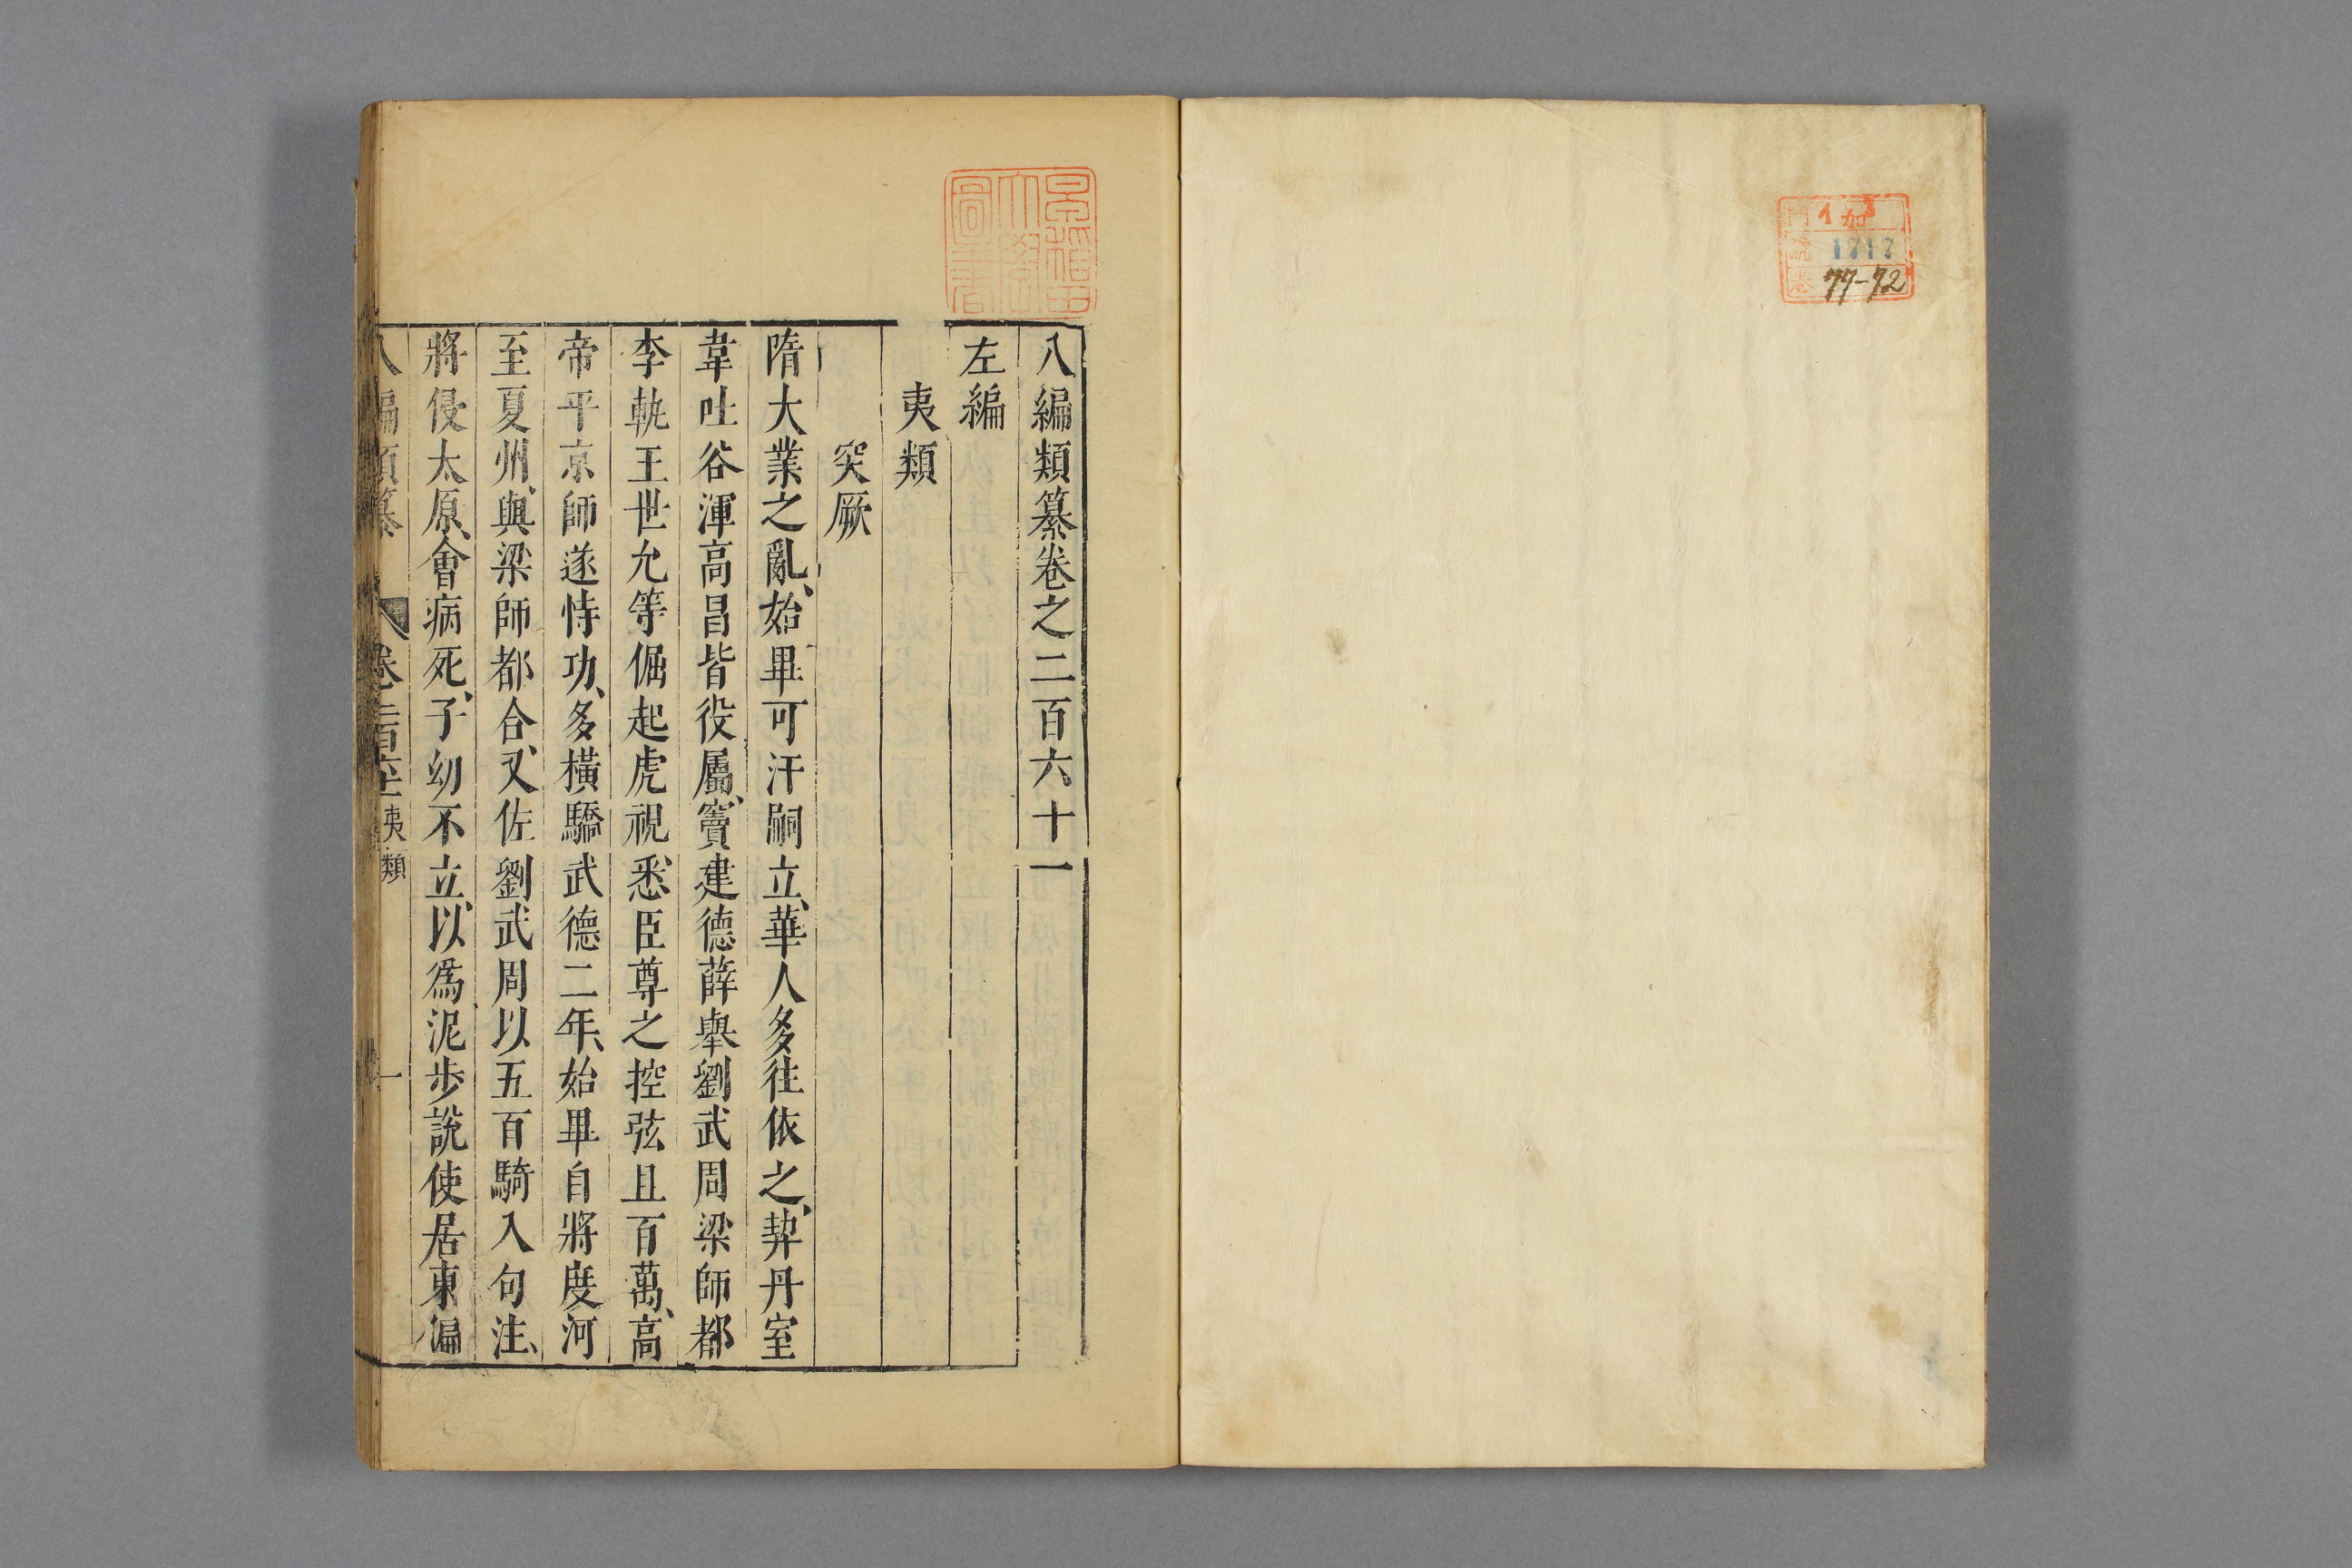 イ 加 3
門
號 1717
卷 77-72
早稲田
大學
圖書
八編類纂卷之二百六十一
左編
夷類
突厥
隋大業之亂、始畢可汗嗣立、華人多往依之、契丹室
韋吐谷渾高昌皆役屬、竇建德薛舉劉武周梁師都
李軌王世允等倔起虎視、悉臣尊之控弦且百萬、高
帝平京師遂恃功、多橫驕武德二年、始畢自將度河
至夏州、與梁師都合、又佐劉武周以五百騎入句注、
將侵太原、會病死、子幼不立、以爲泥步說使居東偏
八編類纂 卷二百六十一 夷類 一